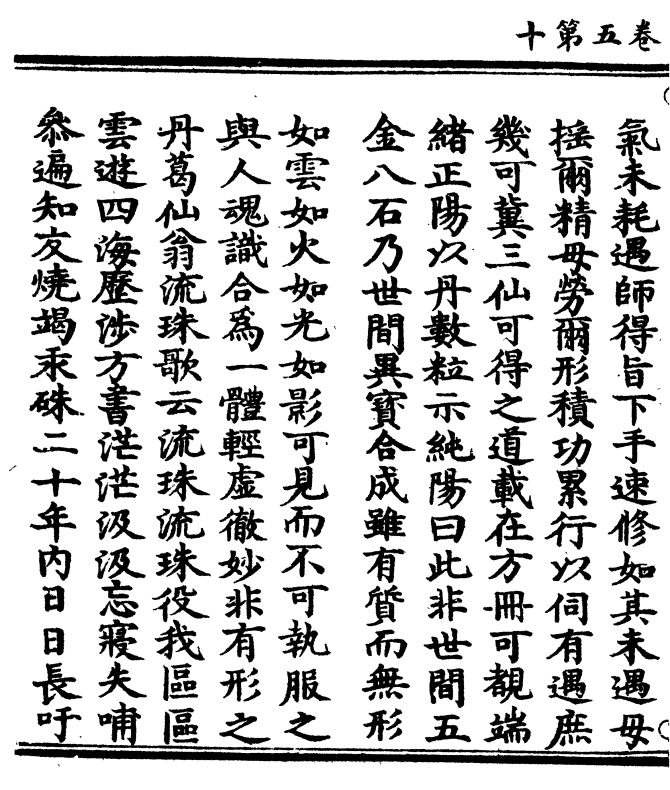 卷五第十
氣未耗遇師得旨下手速修如其未遇毋
揺爾精毋勞爾形積功累行以伺有遇庶
幾可冀三仙可得之道載在方冊可覩端
緒正陽以丹數粒示純陽曰此非世間五
金八石乃世間異寳合成雖有質而無形
如雲如火如光如影可見而不可執服之
與人魂識合爲一體輕虛徹妙非有形之
丹葛仙翁流珠歌云流珠流珠役我區區
雲遊四海歷涉方書茫茫汲汲忘寢失哺
叅遍知友燒竭汞硃二十年內日日長吁